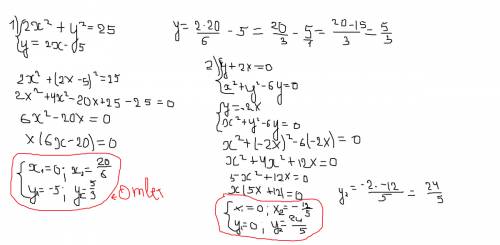 1) { 2x² + y² = 25
y = 2x - 5
2x² + (2x - 5)² = 25
2x² + 4x² - 20x + 25 - 25 = 0
6x² - 20x = 0
x(6x - 20) = 0
{ x₁ = 0 ; x₂ = 20/6
y₁ = -5 ; y = 5/3
y = 2·20/6 - 5 = 20/3 - 5/1 = (20-15)/3 = 5/3
2) { y + 2x = 0
x² + y² - 6y = 0
{ y = -2x
x² + y² - 6y = 0
x² + (-2x)² - 6(-2x) = 0
x² + 4x² + 12x = 0
5x² + 12x = 0
x(5x + 12) = 0
{ x₁ = 0 ; x₂ = -12/5
y₁ = 0 ; y₂ = 24/5
y₂ = -2·-12/5 = 24/5